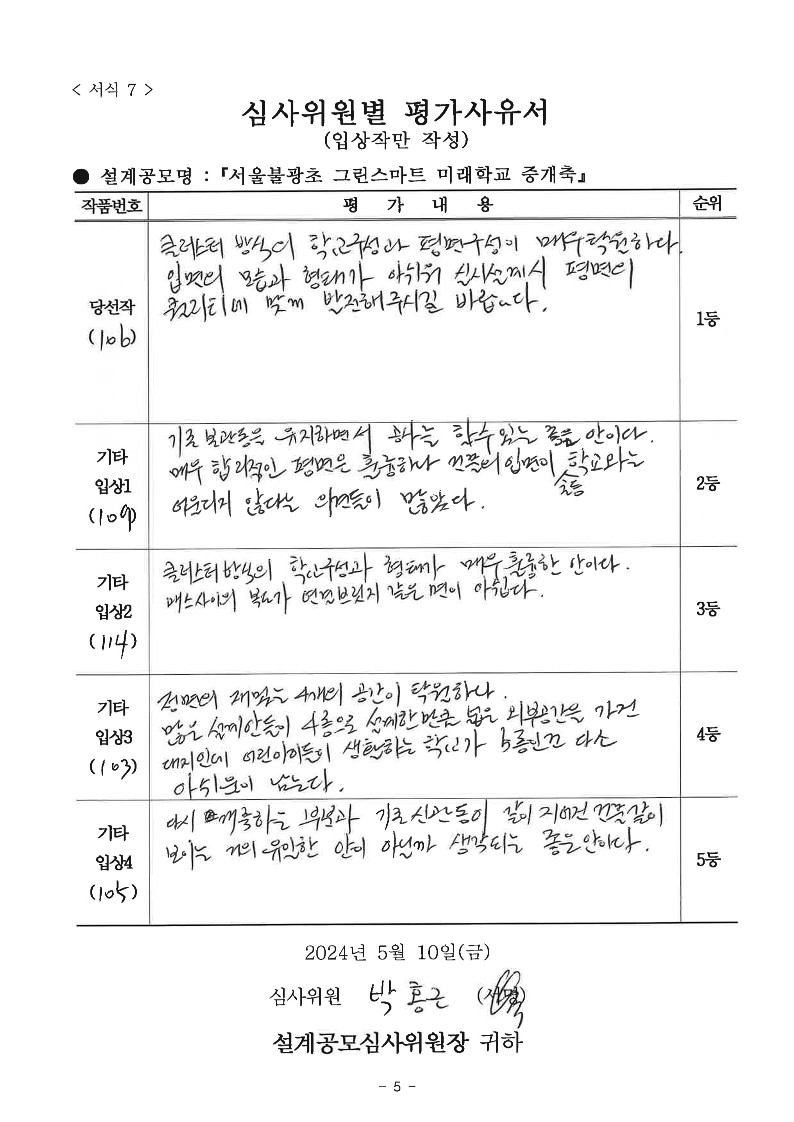 < 서식 7 >
심사위원별 평가사유서
(입상작만 작성)
● 설계공모명 : 『서울불광초 그린스마트 미래학교 증개축』
작품번호 평 가 내 용 순위
당선작
(106)
클러스터 방식의 학교구성과 평면구성이 매우 탁월하다.
입면의 모습과 형태가 아쉬워 실시설계시 평면의
퀄리티에 맞게 발전해주시길 바랍니다.
1등
기타
입상1
(109)
기존 본관동을 유지하면서 공사를 할수 있는 좋은 안이다.
매우 합리적인 평면은 훌륭하나 건물의 입면이 초등 학교와는
어울리지 않다는 의견들이 많았다.
2등
기타
입상2
(114)
클러스터 방식의 학교구성과 형태가 매우 훌륭한 안이다.
매스사이의 복도가 연결브릿지 같은 면이 아쉽다.
3등
기타
입상3
(103)
전면의 재밌는 4개의 공간이 탁월하나.
많은 설계안들이 4층으로 설계할만큼 넓은 외부공간을 가진
대지인데 어린아이들이 생활하는 학교가 5층인건 다소
아쉬움이 남는다.
4등
기타
입상4
(105)
다시 개축하는 부분과 기존 신관동이 같이 지어진 건물같이
보이는 거의 유일한 안이 아닐까 생각되는 좋은안이다.
5등
2024년 5월 10일(금)
심사위원 박홍근 (서명)
설계공모심사위원장 귀하
- 5 -